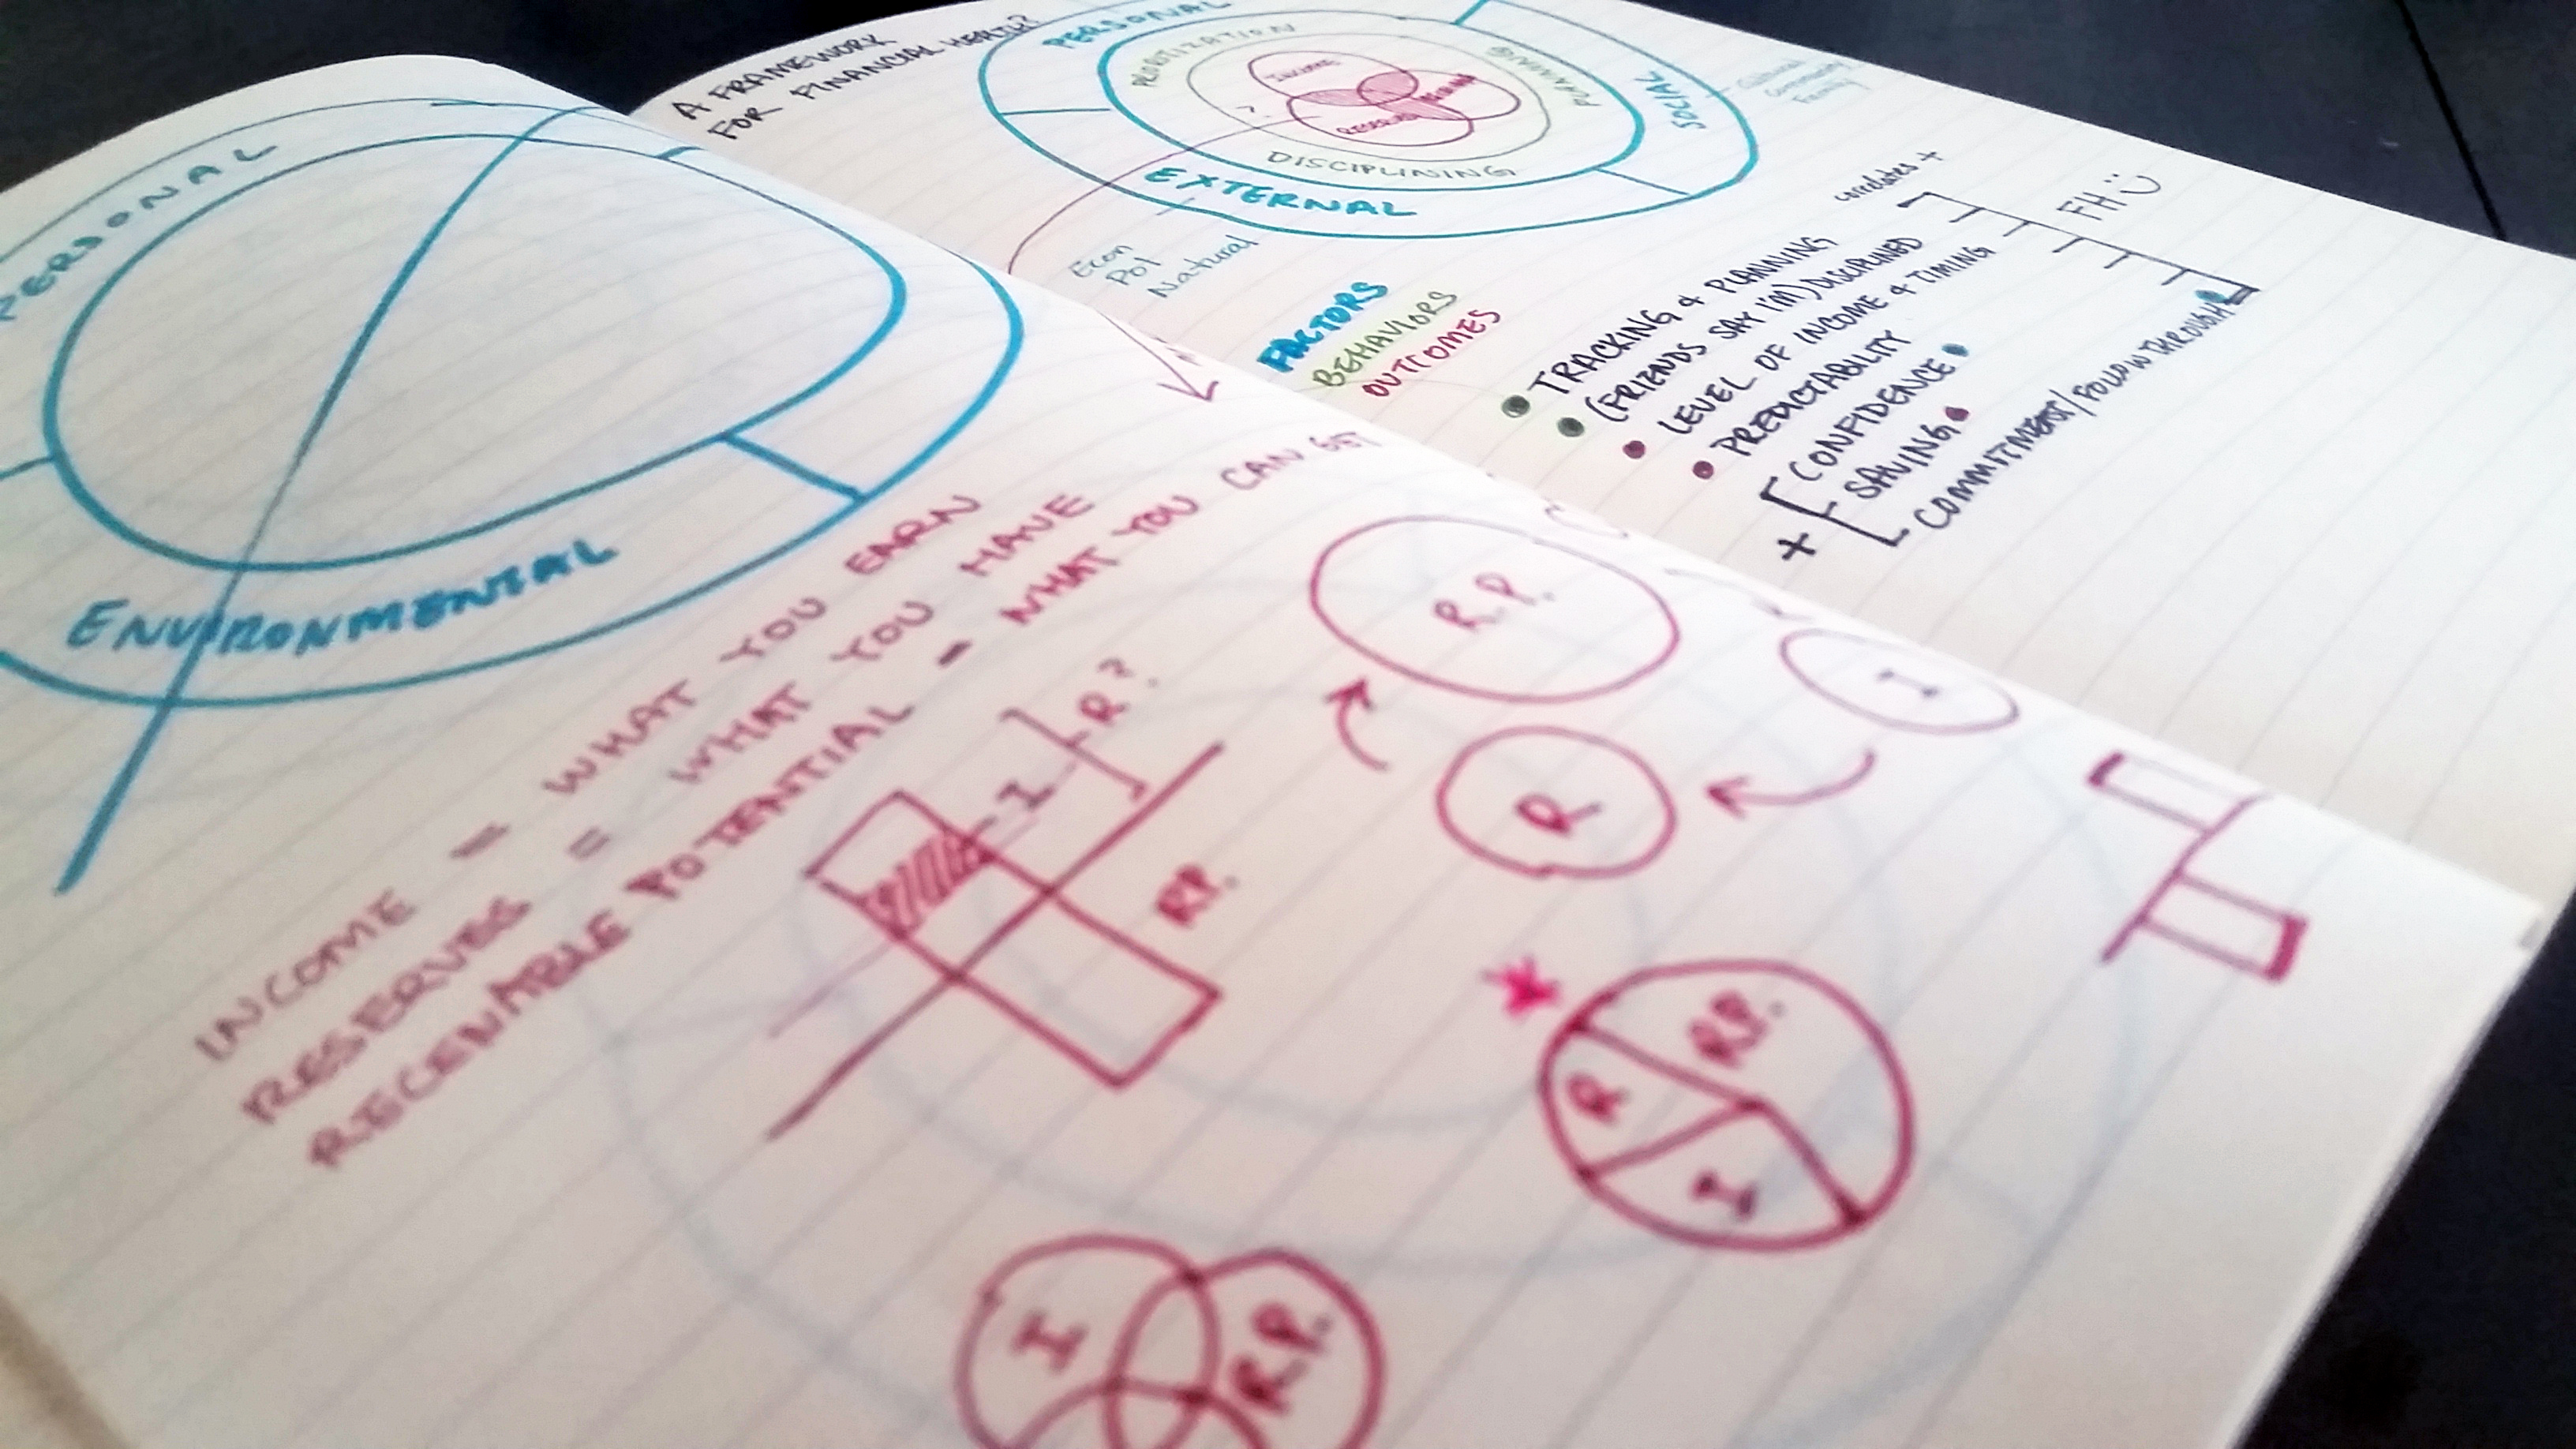 PERSONAL
ENVIRONMENTAL
INCOME - WHAT YOU EARN
RESERVES = WHAT YOU HAVE
REGENABLE POTENTIAL - WHAT YOU CAN GET
I
R?
R.P.
R.P.
R
I
R.P.
R
I
I
R.P.
A FRAMEWORK
FOR FINANCIAL HEALTH?
PERSONAL
SOCIAL
EXTERNAL
PLANNING
DISCIPLINING
INCOME
Cultural
Community
Family
Econ
Pol
Natural
FACTORS
BEHAVIORS
OUTCOMES
correlates +
FH
• TRACKING & PLANNING
• (FRIENDS SAY I'M) DISCIPLINED
• LEVEL OF INCOME & TIMING
• PREDICTABILITY
+ CONFIDENCE
SAVING
COMMITMENT/FOLLOW THROUGH